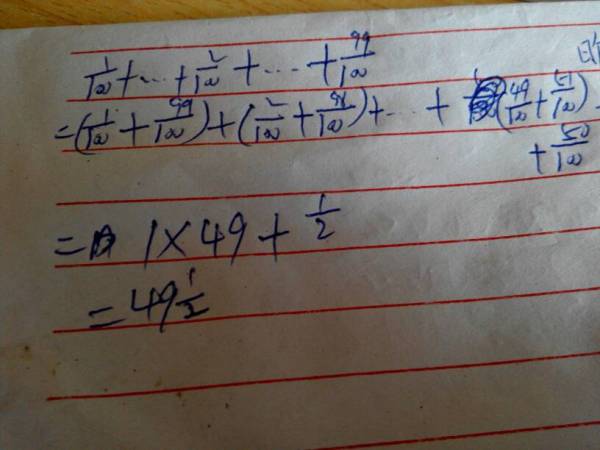 1/100 + ... + 2/100 + ... + 99/100
= (1/100 + 99/100) + (2/100 + 98/100) + ... + (49/100 + 51/100)
+ 50/100
= 1 × 49 + 1/2
= 49 1/2